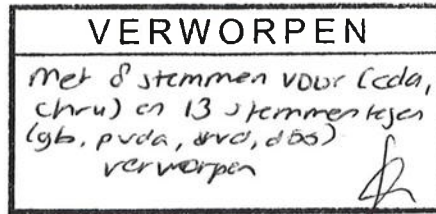 VERWORPEN
met 8 stemmen voor (cda,
chru) en 13 stemmen tegen
(gb, pvda, vvd, d66)
verworpen